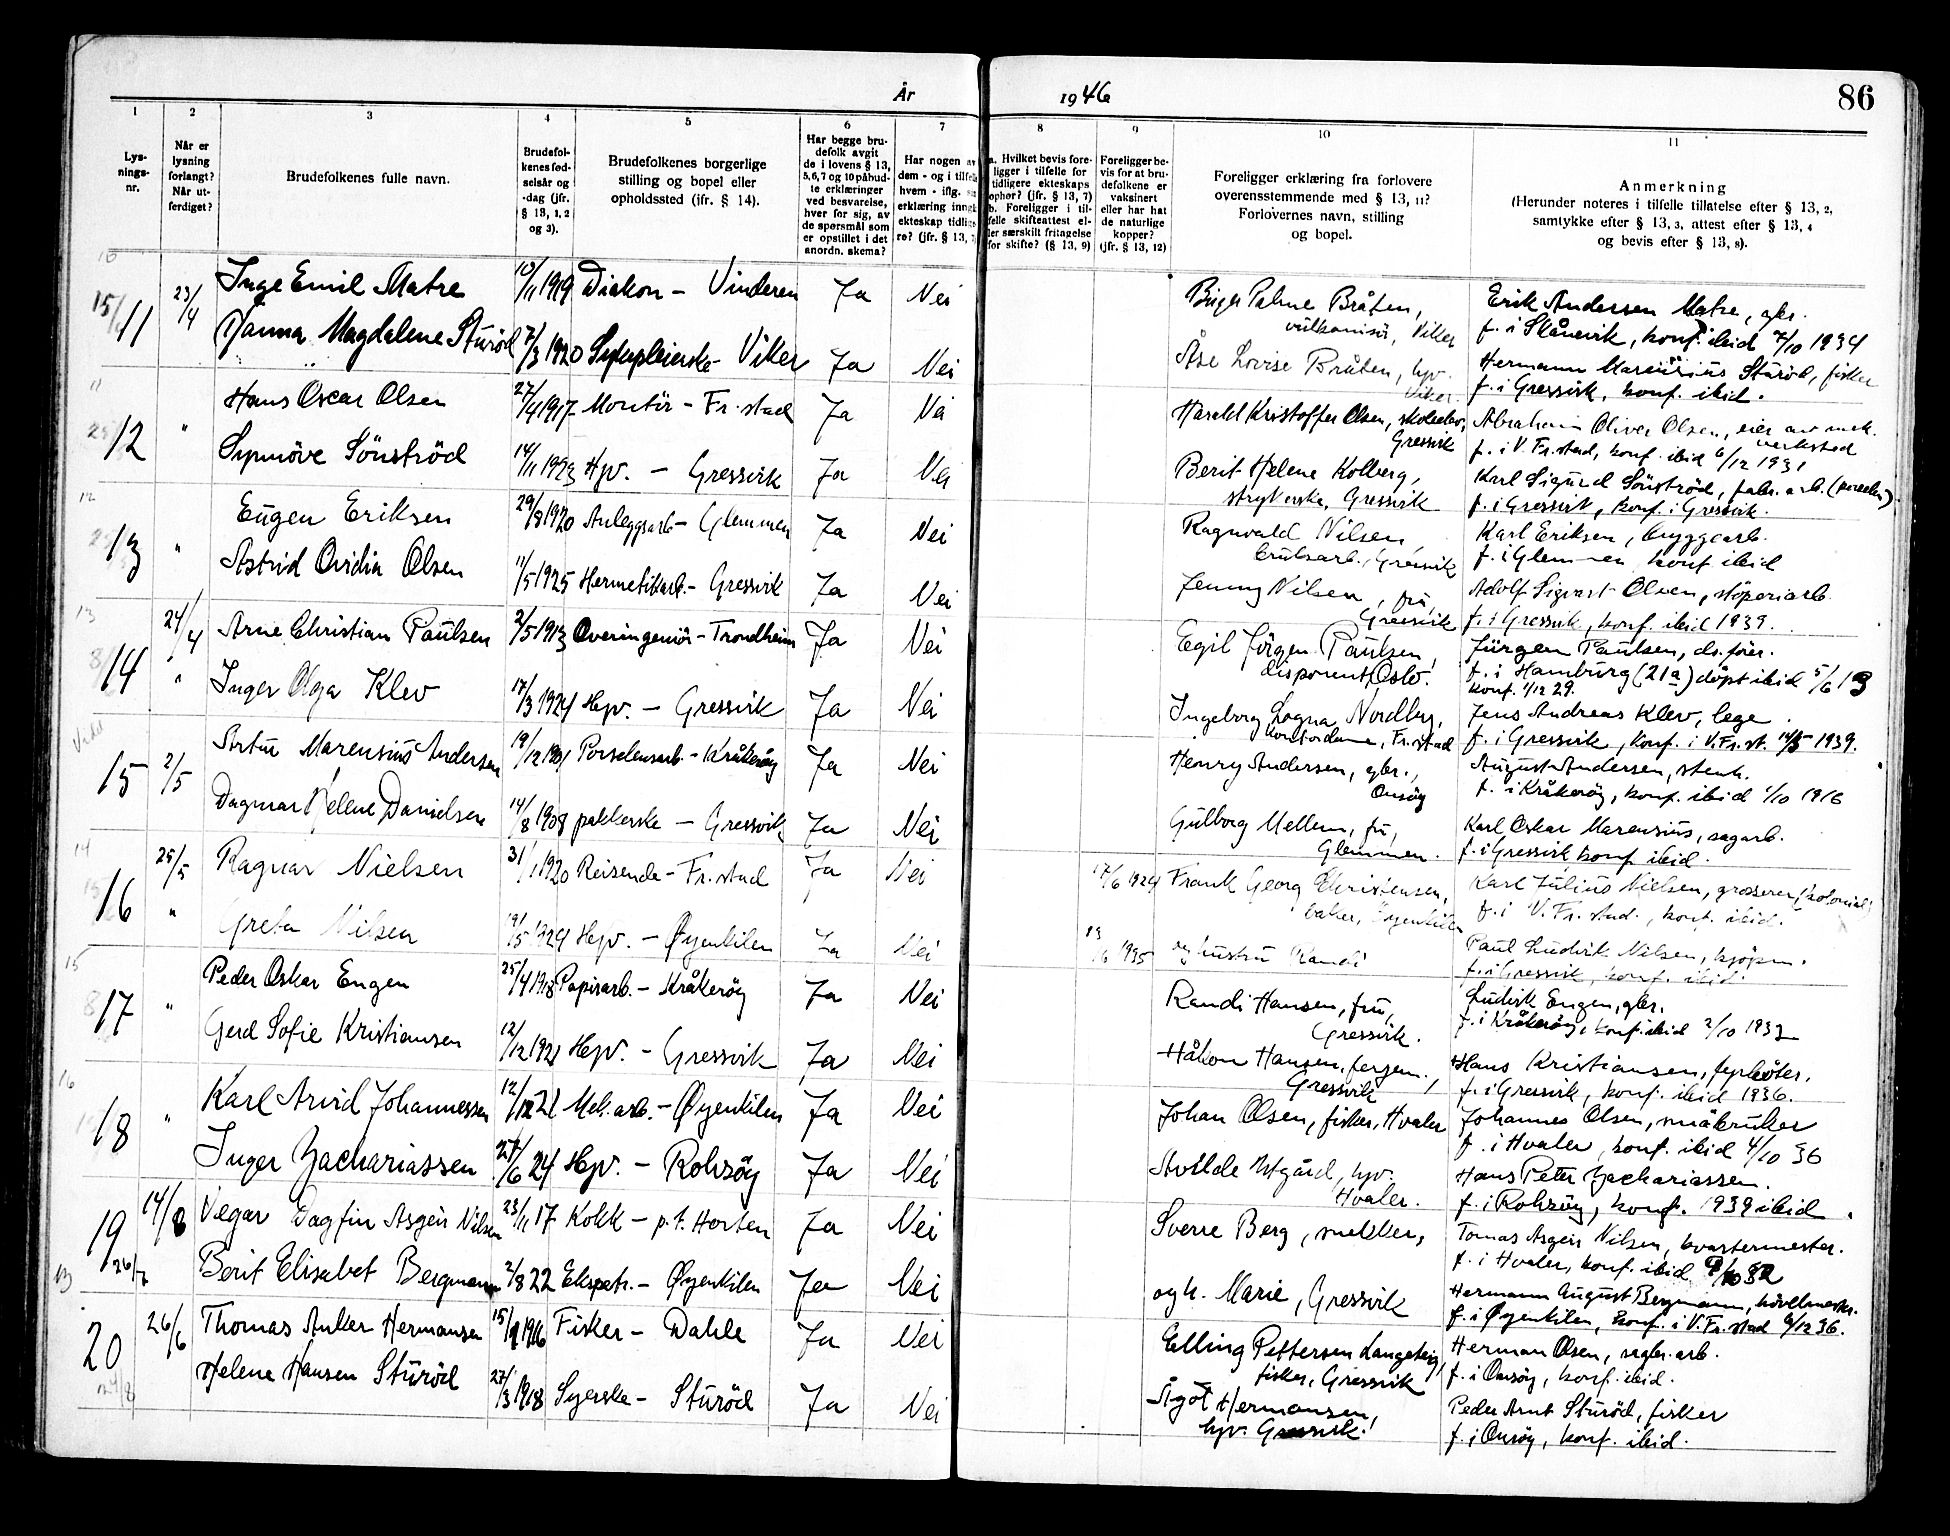 År 1946
86
1 2 3 4 5 6 7 8 9 10 11
Lys-
nings-
nr.
Når er
lysning
forlangt?
Når ut-
ferdiget?
Brudefolkenes fulle navn.
Brudefol-
kenes fød-
selsår og
-dag (jfr.
§ 13, 1, 2
og 3).
Brudefolkenes borgerlige
stilling og bopel eller
opholdssted (jfr. § 14).
Har begge bru-
defolk avgit
de i lovens § 13,
5, 6, 7 og 10 påbud-
te erklæringer
ved besvarelse,
hver for sig, av
de spørsmål som
er opstillet i det
anordn. skema?
Har nogen av
dem - og i tilfelle
hvem - iflg.
erklæring inngå
ekteskap tidlige-
re? (jfr. § 13,
a. Hvilket bevis fore-
ligger i tilfelle for
tidligere ekteskaps
ophør? (jfr. § 13, 7)
b. Foreligger i til-
felle skifteattest el-
ler særskilt fritagelse
for skifte? (§ 13, 9)
Foreligger be-
vis for at bru-
defolkene er
vaksinert
eller har hat
de naturlige
kopper?
(jfr. § 13, 12)
Foreligger erklæring fra forlovere
overensstemmende med § 13, 11?
Forlovernes navn, stilling
og bopel.
Anmerkning
(Herunder noteres i tilfelle tillatelse efter § 13, 2,
samtykke efter § 13, 3, attest efter § 13, 4
og bevis efter § 13, 8).
11 23/4 Inge Emil Matre 10/11 1919 Diakon - Vinderen Ja Nei Birger Palme Bråten, Erik Andersen Matre, gbr.
vulkanisør, Viker f. i Skånevik, konf. ibid 7/10 1934
Hanna Magdalene Sturød 7/3 1920 Sykepleierske - Viker Ja Nei Åse Lovise Bråten, hjv. Hermann Marcurius Sturød, fisker
Viker. f. i Gressvik, konf. ibid.
12 " Hans Oscar Olsen 27/4 1917 Montör - Fr.stad Ja Nei Harald Kristoffer Olsen, Abraham Oliver Olsen, eier av mek.
Gressvik verkstad
f. i V. Fr.stad, konf. ibid 6/12 1931
Synnöve Sönströd 14/11 1923 Hjv. - Gressvik Ja Nei Berit Helene Kolberg, Karl Sigurd Sönströd, fabr. arb.
strykerske, Gressvik f. i Gressvik, konf. i Gressvik.
13 " Eugen Eriksen 29/8 1920 Anleggsarb - Glemmen Ja Nei Ragnvald Nilsen Karl Eriksen, byggearb.
bruksarb., Gressvik f. i Glemmen, konf. ibid
Astrid Ovidia Olsen 11/5 1925 Hermetikarb. - Gressvik Ja Nei Jenny Nilsen, fru, Adolf Sigvart Olsen, støperiarb.
Gressvik f. i Gressvik, konf. ibid 1939.
14 24/4 Arne Christian Paulsen 2/5 1913 Overingeniör - Trondheim Ja Nei Egil Jörgen Paulsen, Jürgen Paulsen,
disponent, Oslo. f. i Hamburg (21a) döpt ibid 5/6 13
konf. 1/12 29.
" Inger Olga Klev 17/3 1924 Hjv. - Gressvik Ja Nei Ingeborg Logna Nordberg, Jens Andreas Klev, lege
kontordame, Fr.stad f. i Gressvik, konf. i V. Fr.st. 14/5 1939.
15 2/5 Artur Marensius Andersen 19/12 1901 Porselensarb. - Kråkeröy Ja Nei Henry Andersen, gbr., August Andersen, stenh.
Onsöy f. i Kråkeröy, konf. ibid 1/10 1916
Dagmar Helene Danielsen 14/8 1908 pakkerske - Gressvik Ja Nei Gulborg Mellem, fru, Karl Oskar Marensius, sagarb.
Glemmen. f. i Gressvik konf. ibid.
16 25/5 Ragnar Nielsen 31/1 1920 Reisende - Fr.stad Ja Nei 17/6 1924 Frank Georg Christensen, Karl Julius Nielsen, grosserer (kolonial)
baker, Öyenkilen f. i V. Fr.stad., konf. ibid.
" Greta Nilsen 19/5 1924 Hjv. - Øyenkilen Ja Nei 19/6 1935 og hustru Randi Paul Ludvik Nilsen, kjöpm.
f. i Gressvik, konf. ibid.
17 " Peder Oskar Engen 25/4 1918 Papirarb. - Kråkeröy Ja Nei Randi Hansen, fru, Ludvik Engen, gbr.
Gressvik. f. i Kråkeröy, konf. ibid 2/10 1932
Gerd Sofie Kristiansen 12/12 1921 Hjv. - Gressvik Ja Nei Håkon Hansen, fergem., Hans Kristiansen, fyrböter,
Gressvik f. i Gressvik, konf. ibid 1936.
18 " Karl Arvid Johannessen 12/12 21 Mek. arb. - Øyenkilen Ja Nei Johan Olsen, fisker, Hvaler Johannes Olsen, småbruker
f. i Hvaler, konf. ibid 4/10 36
Inger Zachariassen 27/6 24 Hjv. - Rohröy Ja Nei Avilde Utgård, hjv. Hans Peter Zachariassen.
Hvaler. f. i Rohröy, konf. 1939 ibid.
19 14/6 Vegar Dagfin Asgeir Nilsen 23/11 17 Kokk - p.t. Horten Ja Nei Sverre Berg, Tomas Asgeir Nilsen, kvartermester.
f. i Hvaler, konf. ibid 9/10 32
26/7 Berit Elisabet Bergmann 2/8 22 Ekspetr. - Øyenkilen Ja Nei og h. Marie, Gressvik Hermann August Bergmann,
f. i Øyenkilen, konf. i V. Fr.stad 6/12 36.
20 26/6 Thomas Anker Hermansen 1916 Fisker - Dahle Ja Nei Elling Pettersen Langeteig, Herman Olsen, arb.
fisker, Gressvik f. i Onsöy, konf. ibid.
Helene Hansen Sturöd 27/3 1918 Syerske - Sturöd Ja Nei Ågot Hermansen, Peder Arnt Sturöd, fisker
hjv. Gressvik. f. i Onsöy, konf. ibid.